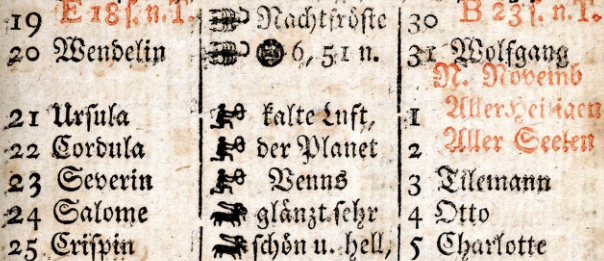 19 E 18 s. n. T. Nachtfröste 30 B 23 s. n. T.
20 Wendelin 6, 51 n. 31 Wolfgang
N. Novemb
21 Ursula kalte Luft, 1 Aller Heiligen
22 Cordula der Planet 2 Aller Seelen
23 Severin Venus 3 Tilemann
24 Salome glänzt sehr 4 Otto
25 Crispin schön u. hell, 5 Charlotte